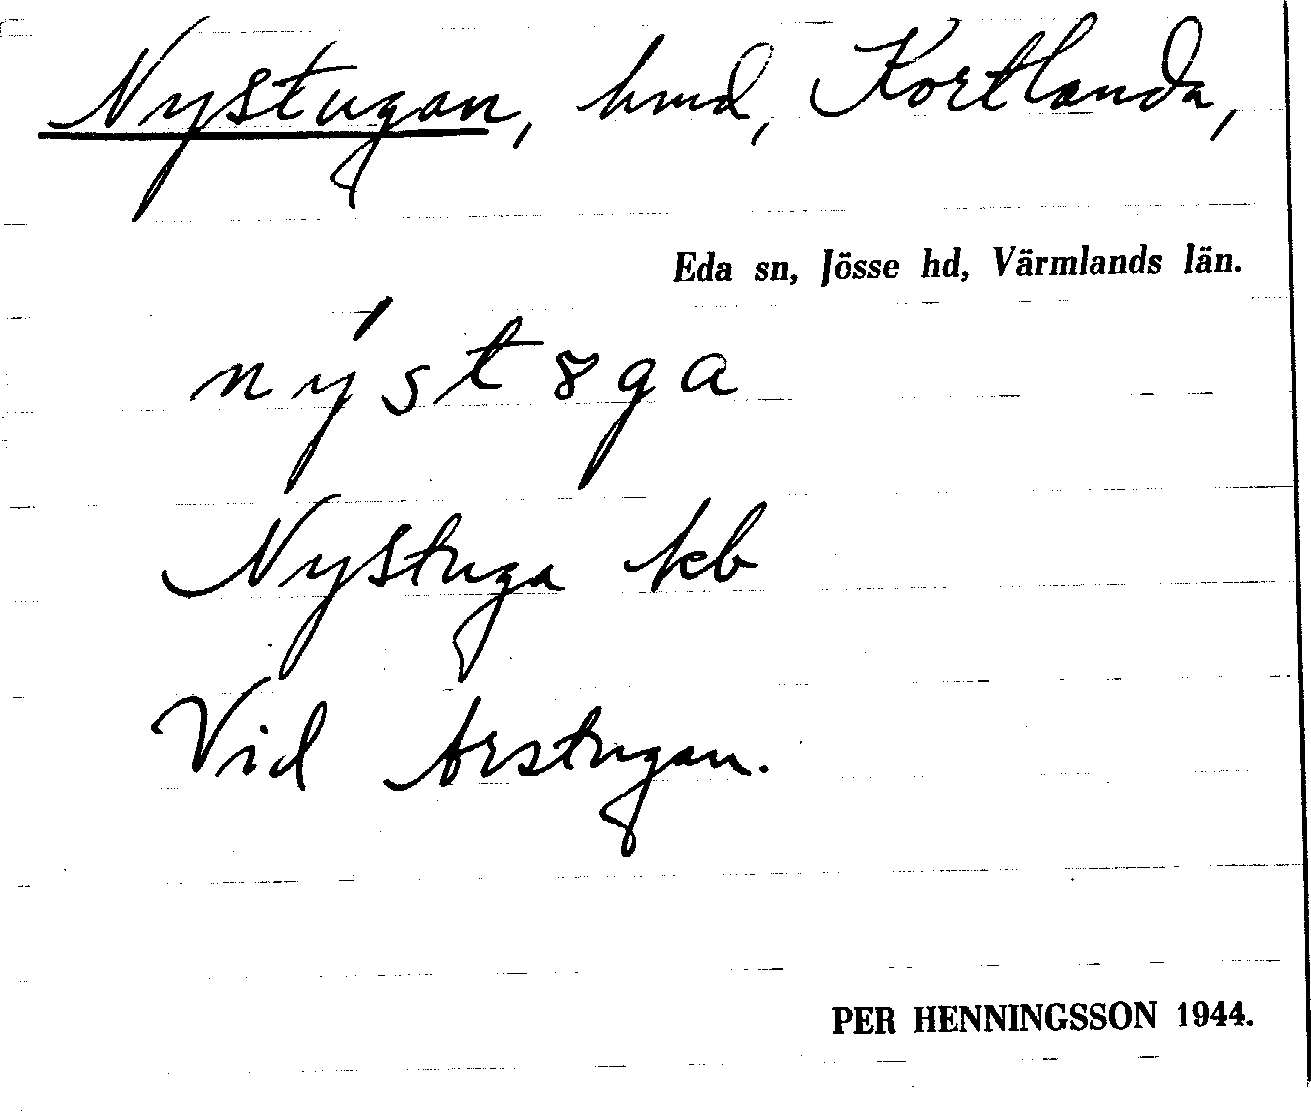 Nystugan, hmd, Kortlanda,
Eda sn, Jösse hd, Värmlands län.
nýstȣga
Nystuga kb
Vid Arstugan.
PER HENNINGSSON 1944.